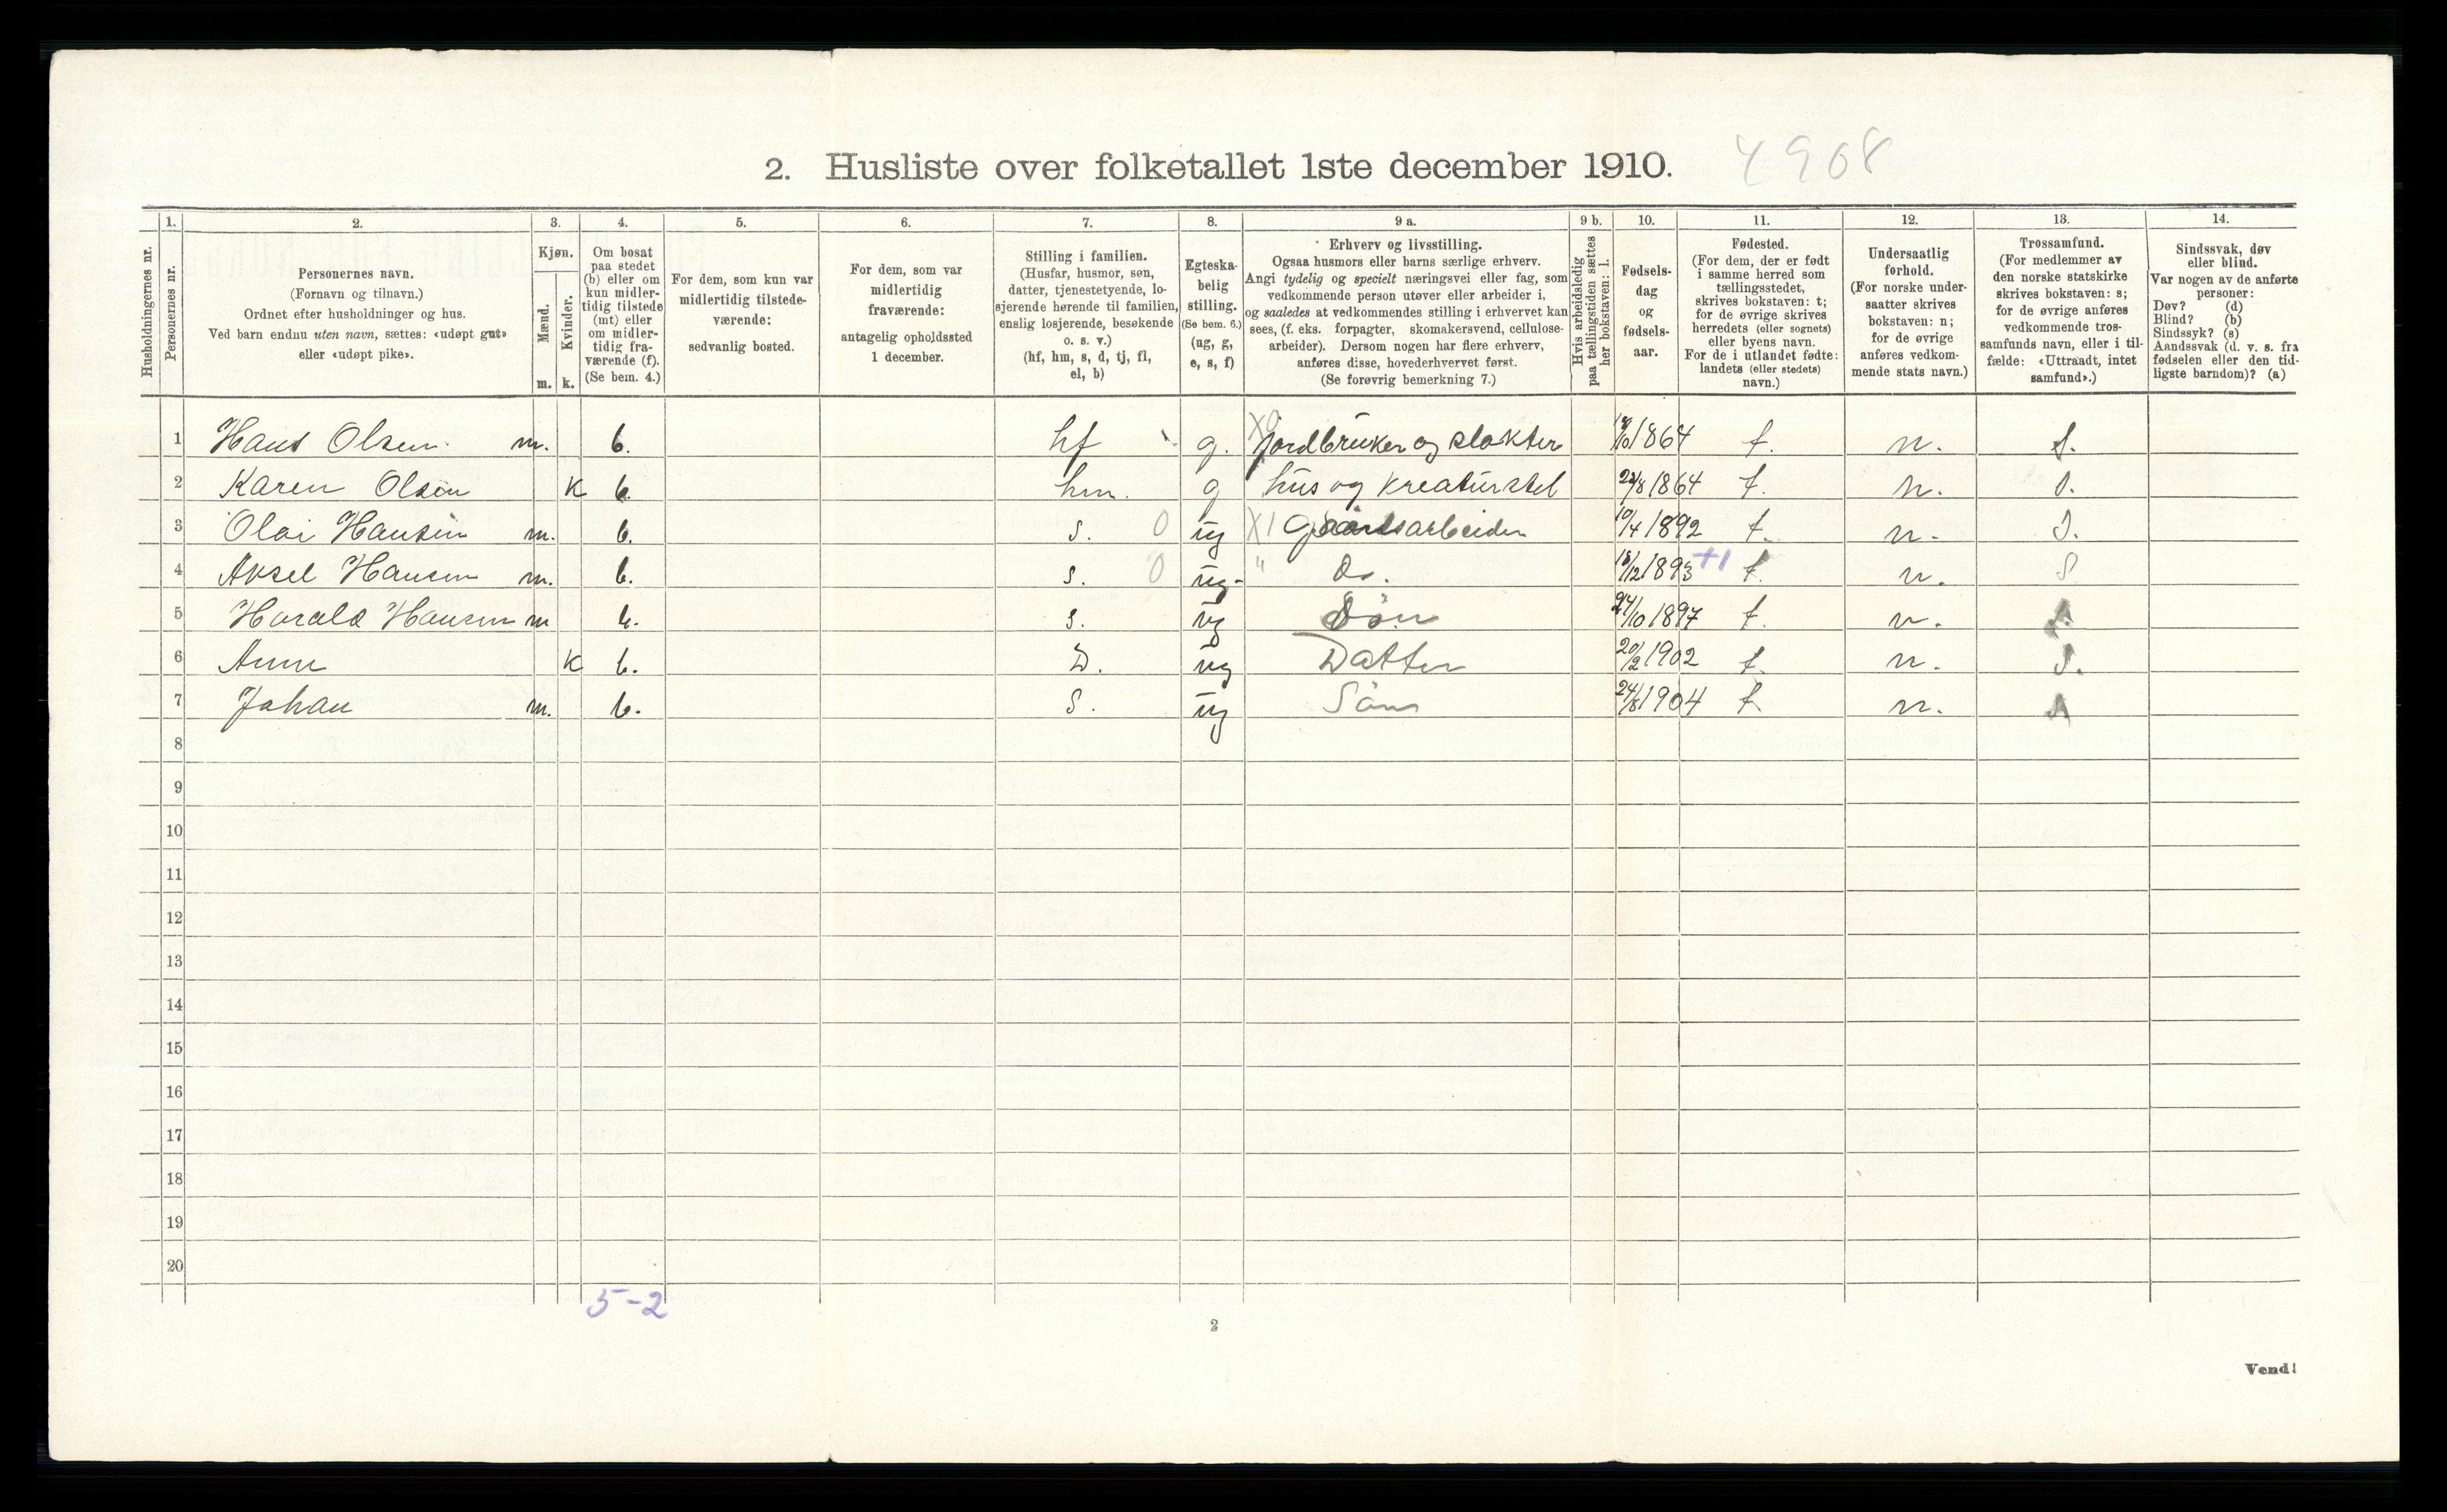 2. Husliste over folketallet 1ste december 1910. 4908
Husholdningernes nr.
1.
Personernes nr.
2.
Personernes navn.
(Fornavn og tilnavn.)
Ordnet efter husholdninger og hus.
Ved barn endnu uten navn, sættes: «udøpt gut»
eller «udøpt pike».
3.
Kjøn.
Mænd.
m.
Kvinder.
k.
4.
Om bosat
paa stedet
(b) eller om
kun midler-
tidig tilstede
(mt) eller
om midler-
tidig fra-
værende (f).
(Se bem. 4.)
5.
For dem, som kun var
midlertidig tilstede-
værende:
sedvanlig bosted.
6.
For dem, som var
midlertidig
fraværende:
antagelig opholdssted
1 december.
7.
Stilling i familien.
(Husfar, husmor, søn,
datter, tjenestetyende, lo-
sjerende hørende til familien,
enslig losjerende, besøkende
o. s. v.)
(hf, hm, s, d, tj, fl,
el, b)
8.
Egteska-
belig
stilling.
(Se bem. 6.)
(ug, g,
e, s, f)
9 a.
Erhverv og livsstilling.
Ogsaa husmors eller barns særlige erhverv.
Angi tydelig og specielt næringsvei eller fag, som
vedkommende person utøver eller arbeider i,
og saaledes at vedkommendes stilling i erhvervet kan
sees, (f. eks. forpagter, skomakersvend, cellulose-
arbeider). Dersom nogen har flere erhverv,
anføres disse, hovederhvervet først.
(Se forøvrig bemerkning 7.)
9 b.
Hvis arbeidsledig
paa tællingstiden sættes
her bokstaven: l.
10.
Fødsels-
dag
og
fødsels-
aar.
11.
Fødested.
(For dem, der er født
i samme herred som
tællingsstedet,
skrives bokstaven: t;
for de øvrige skrives
herredets (eller sognets)
eller byens navn.
For de i utlandet fødte:
landets (eller stedets)
navn.)
12.
Undersaatlig
forhold.
(For norske under-
saatter skrives
bokstaven: n;
for de øvrige
anføres vedkom-
mende stats navn.)
13.
Trossamfund.
(For medlemmer av
den norske statskirke
skrives bokstaven: s;
for de øvrige anføres
vedkommende tros-
samfunds navn, eller i til-
fælde: «Uttraadt, intet
samfund».)
14.
Sindssvak, døv
eller blind.
Var nogen av de anførte
personer:
Døv? (d)
Blind? (b)
Sindssyk? (s)
Aandssvak (d. v. s. fra
fødselen eller den tid-
ligste barndom)? (a)
1 Hans Olsen m. b. hf g. X0 Jordbruker og slakter /10 1864 t. n. s.
2 Karen Olsen k b. hm. g hus og kreaturstel 22/8 1864 t. n. s.
3 Olai Hansen m. b. s. 0 ug X1 Gaardsarbeider 10/4 1892 t. n. s.
4 Aksel Hansen m. b. s. 0 ug. " Do. 18/12 1893 +1 t. n. s
5 Harald Hansen m b. s. ug Søn 24/10 1897 t. n. s.
6 Anne k b. D. ug Datter 20/2 1902 t. n. s.
7 Johan m. b. s. ug Søn 24/8 1904 t. n. s
8
9
10
11
12
13
14
15
16
17
18
19
20
5-2
2
Vend!